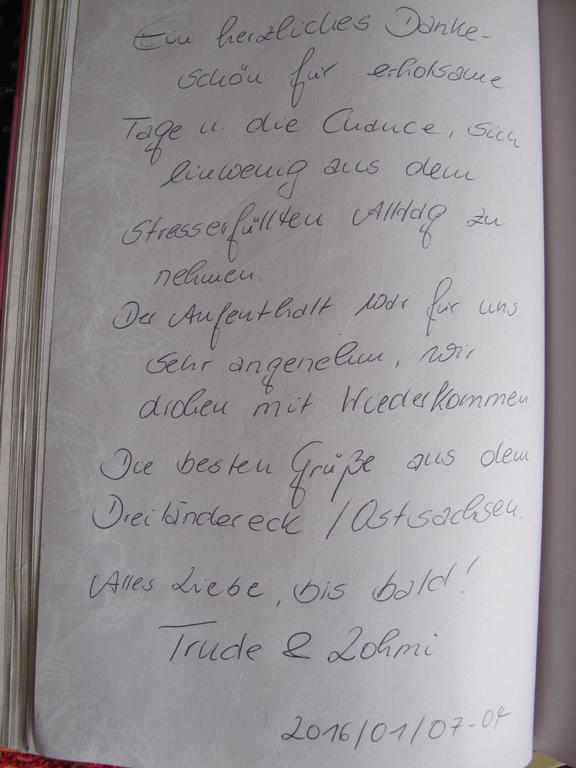 Ein herzliches Danke-
schön für erholsame
Tage u. die Chance, sich
einwenig aus dem
stresserfüllten Alltag zu
nehmen.
Der Aufenthalt war für uns
sehr angenehm, wir
drohen mit Wiederkommen
Die besten Grüße aus dem
Dreiländereck / Ostsachsen.
Alles Liebe, bis bald!
Trude & Lohmi
2016/01/07-04